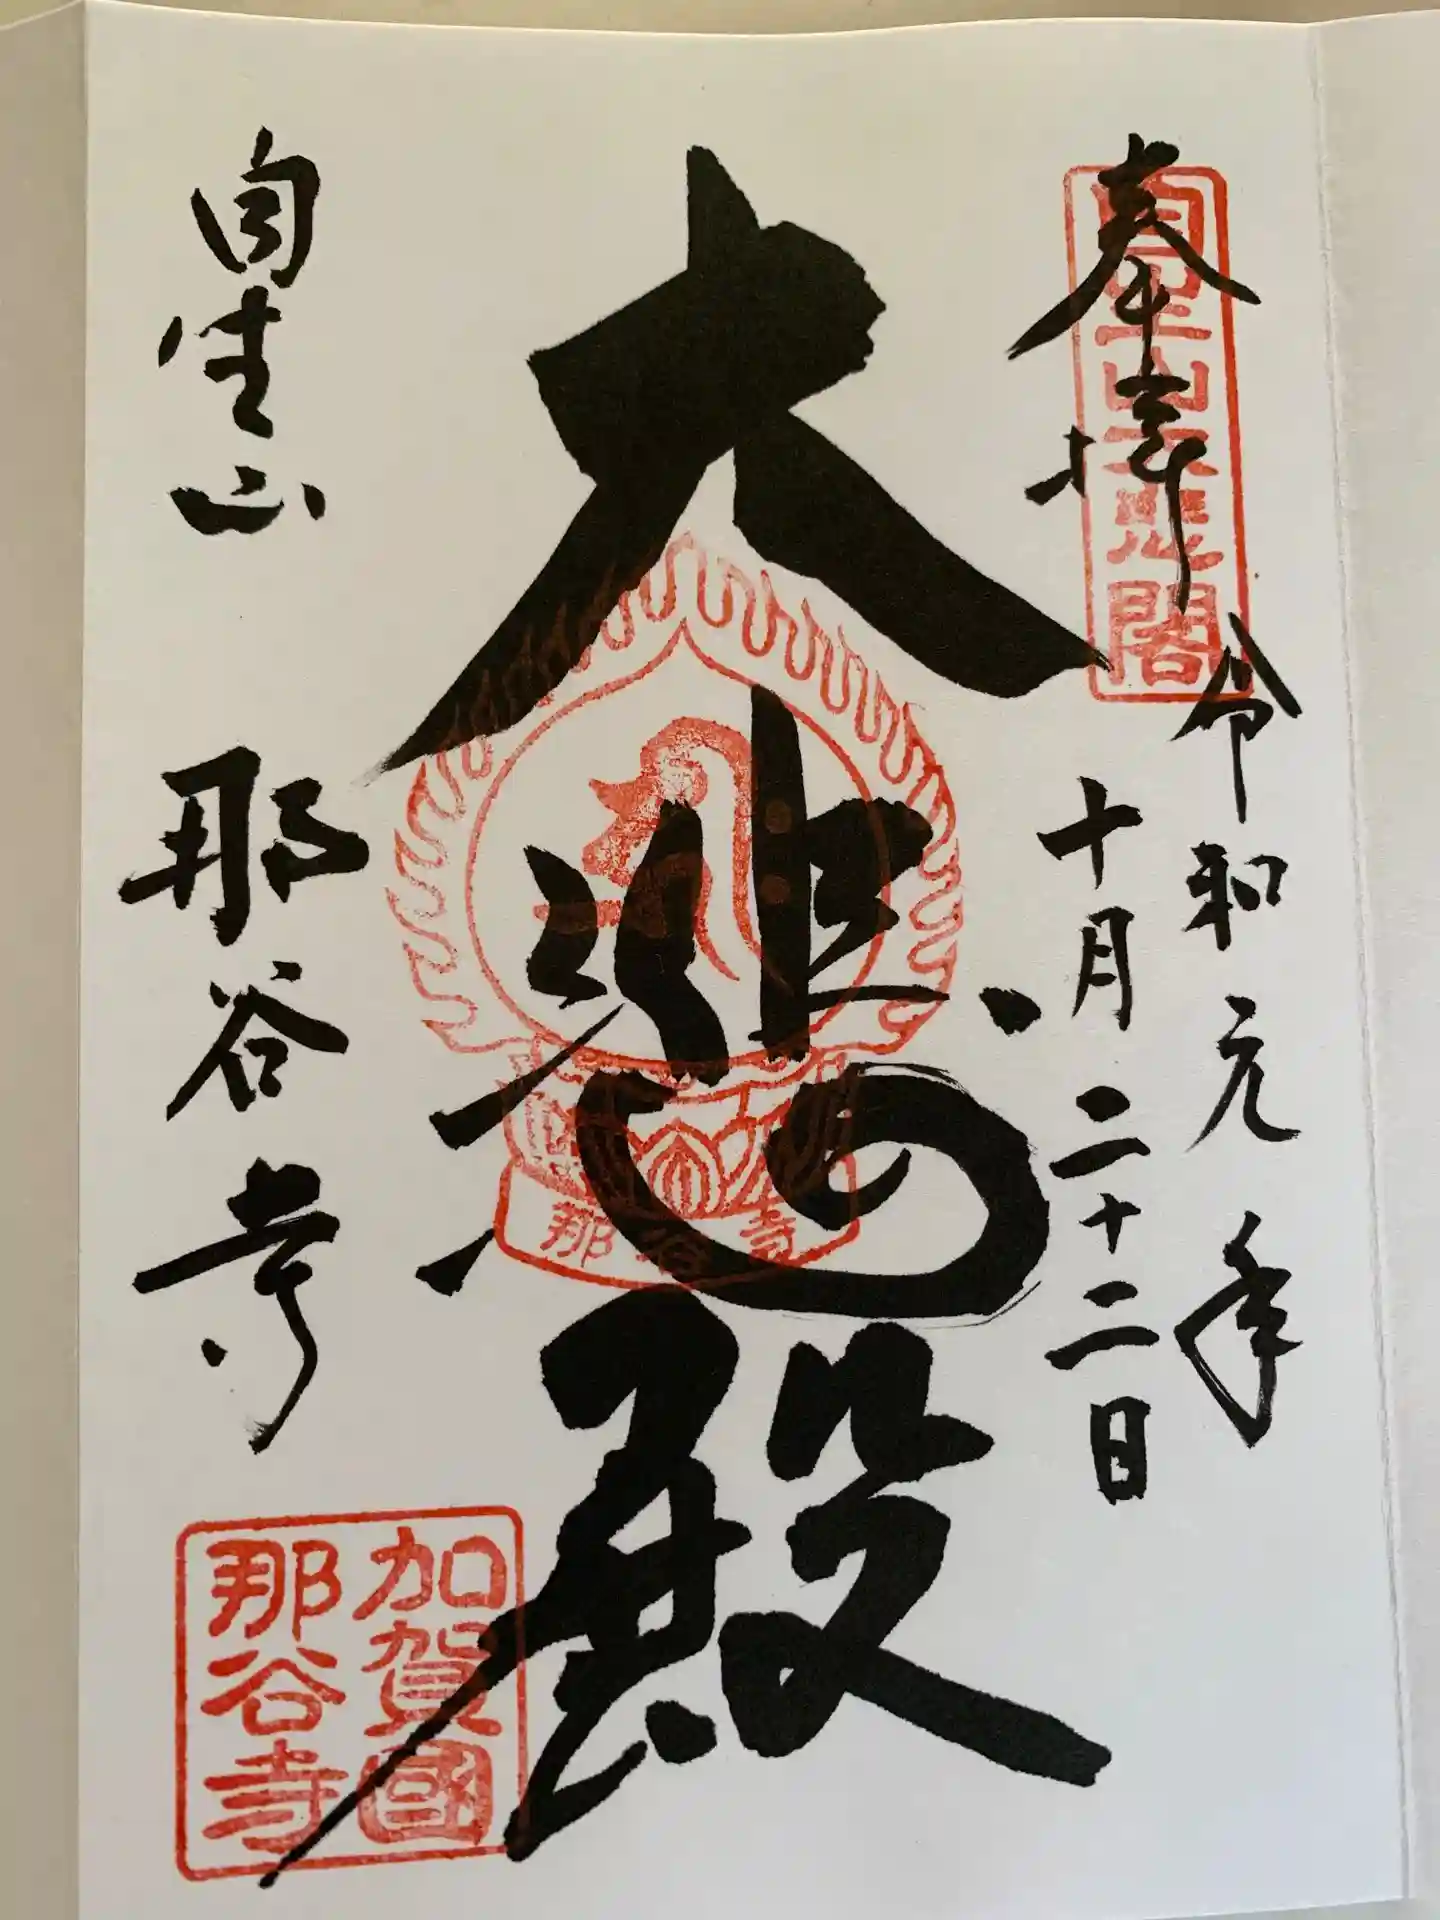 奉拝
令和元年
十月二十二日
自生山大悲閣
大悲殿
那谷寺
自生山
那谷寺
加賀國
那谷寺